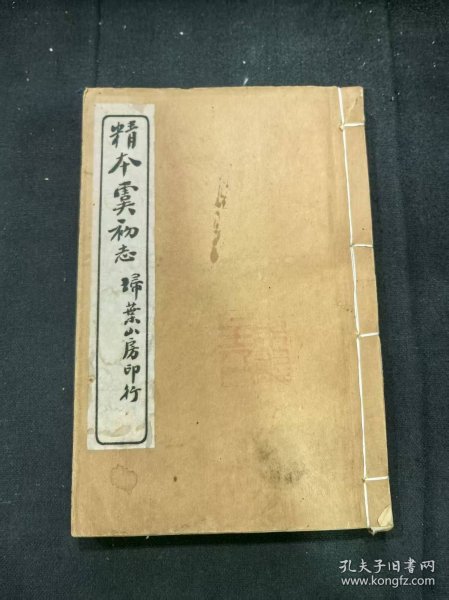 精本虞初志
埽葉山房印行
孔夫子旧书网
www.kongfz.com